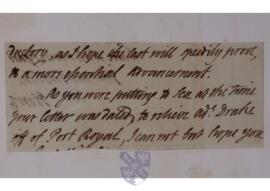 ductory, as I hope the last will speedily prove,
to a more essential advancement.
As you were putting to sea at the time
your letter was dated, to relieve adl. Drake
off of Port Royal, I can not but hope you